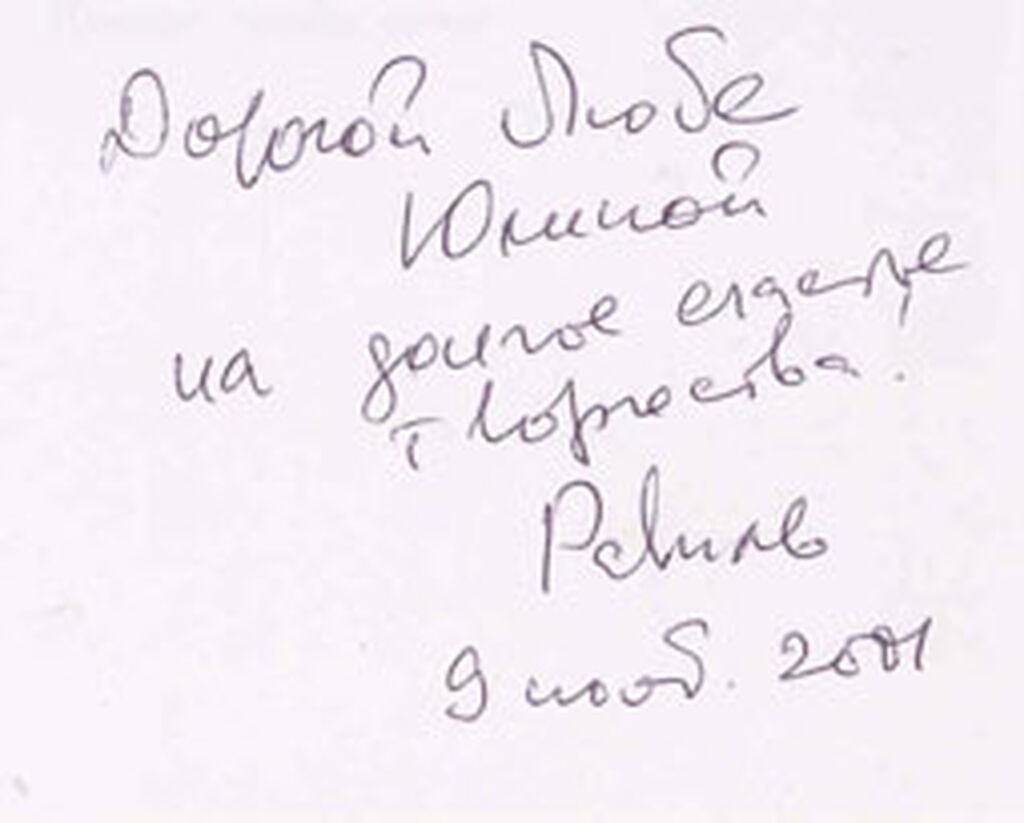 Дорогой Любе
на долгое счастье
творчества.
Равиль
9 нояб. 2001